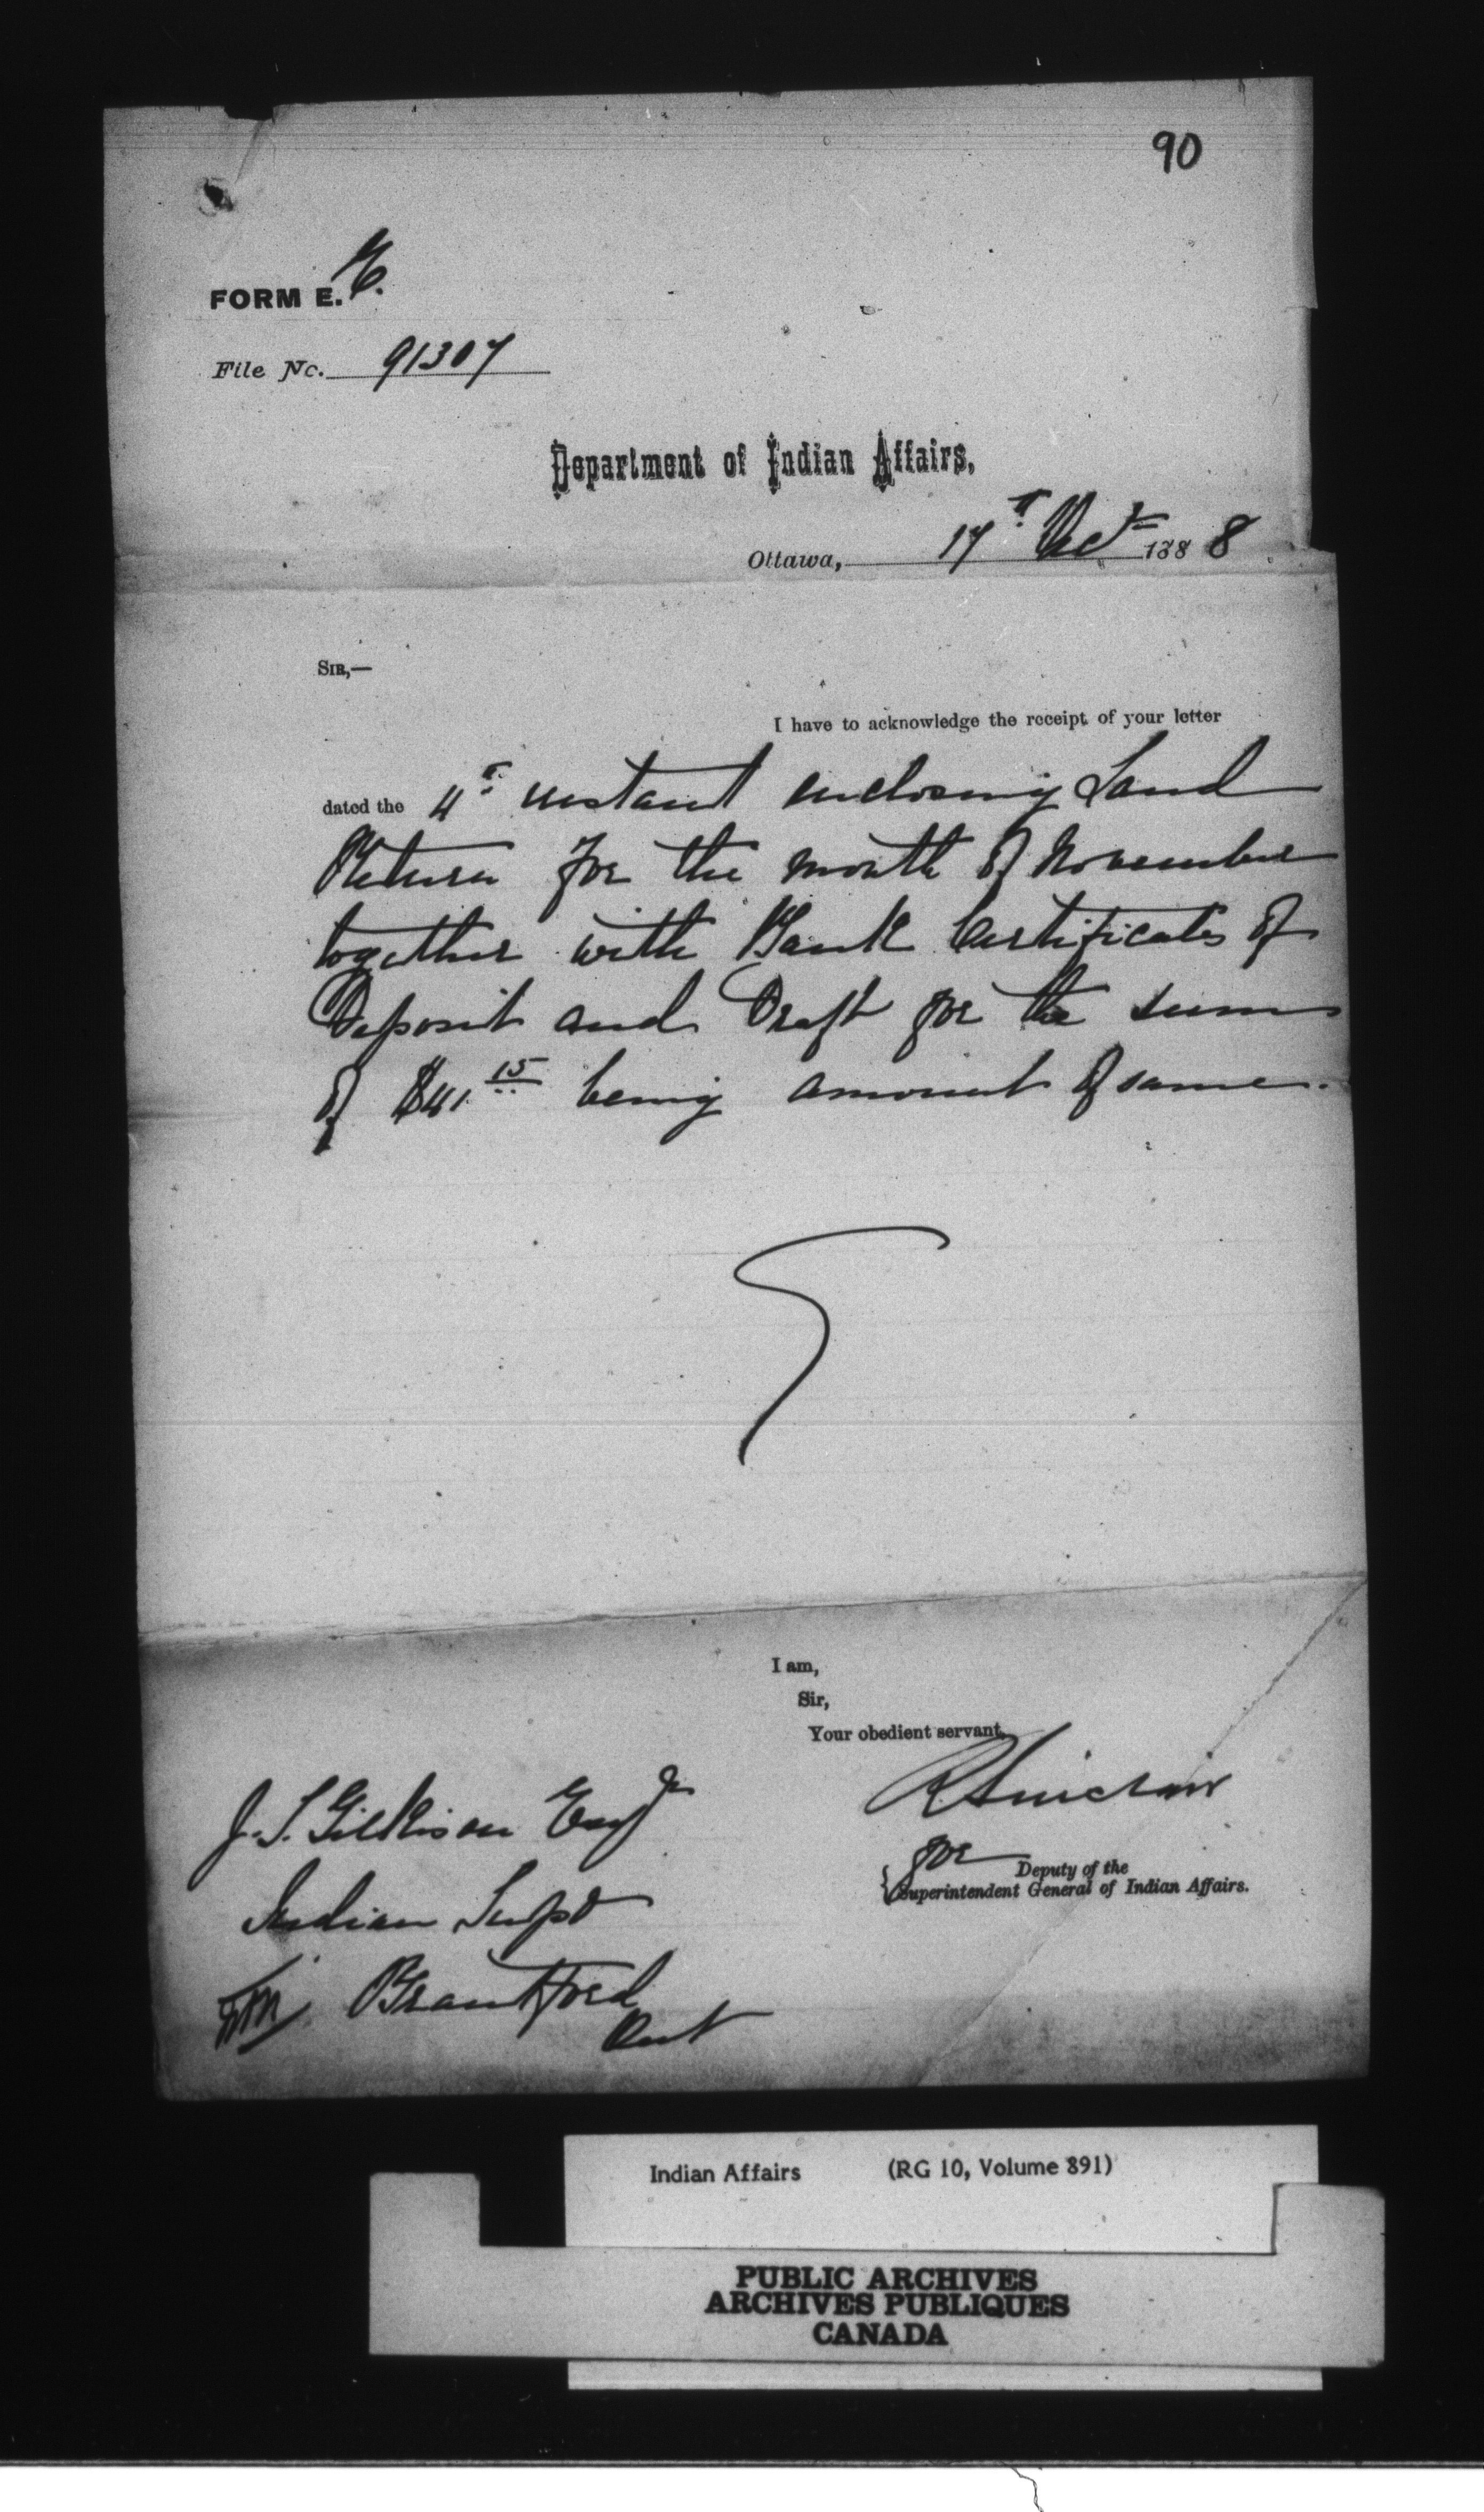 90
FORM E.
File No. 91307
Department of Indian Affairs,
Ottawa, 17th Dec 1888
SIR,—
I have to acknowledge the receipt of your letter
dated the 4th instant enclosing Land
Return for the month of November
together with Bank Certificates of
Deposit and Draft for the sum
of $41.15 being amount of same.
I am,
Sir,
Your obedient servant,
R Sinclair
for Deputy of the
Superintendent General of Indian Affairs.
J. T. Gilkison Esqr
Indian Supt
Brantford
Ont
Indian Affairs (RG 10, Volume 891)
PUBLIC ARCHIVES
ARCHIVES PUBLIQUES
CANADA